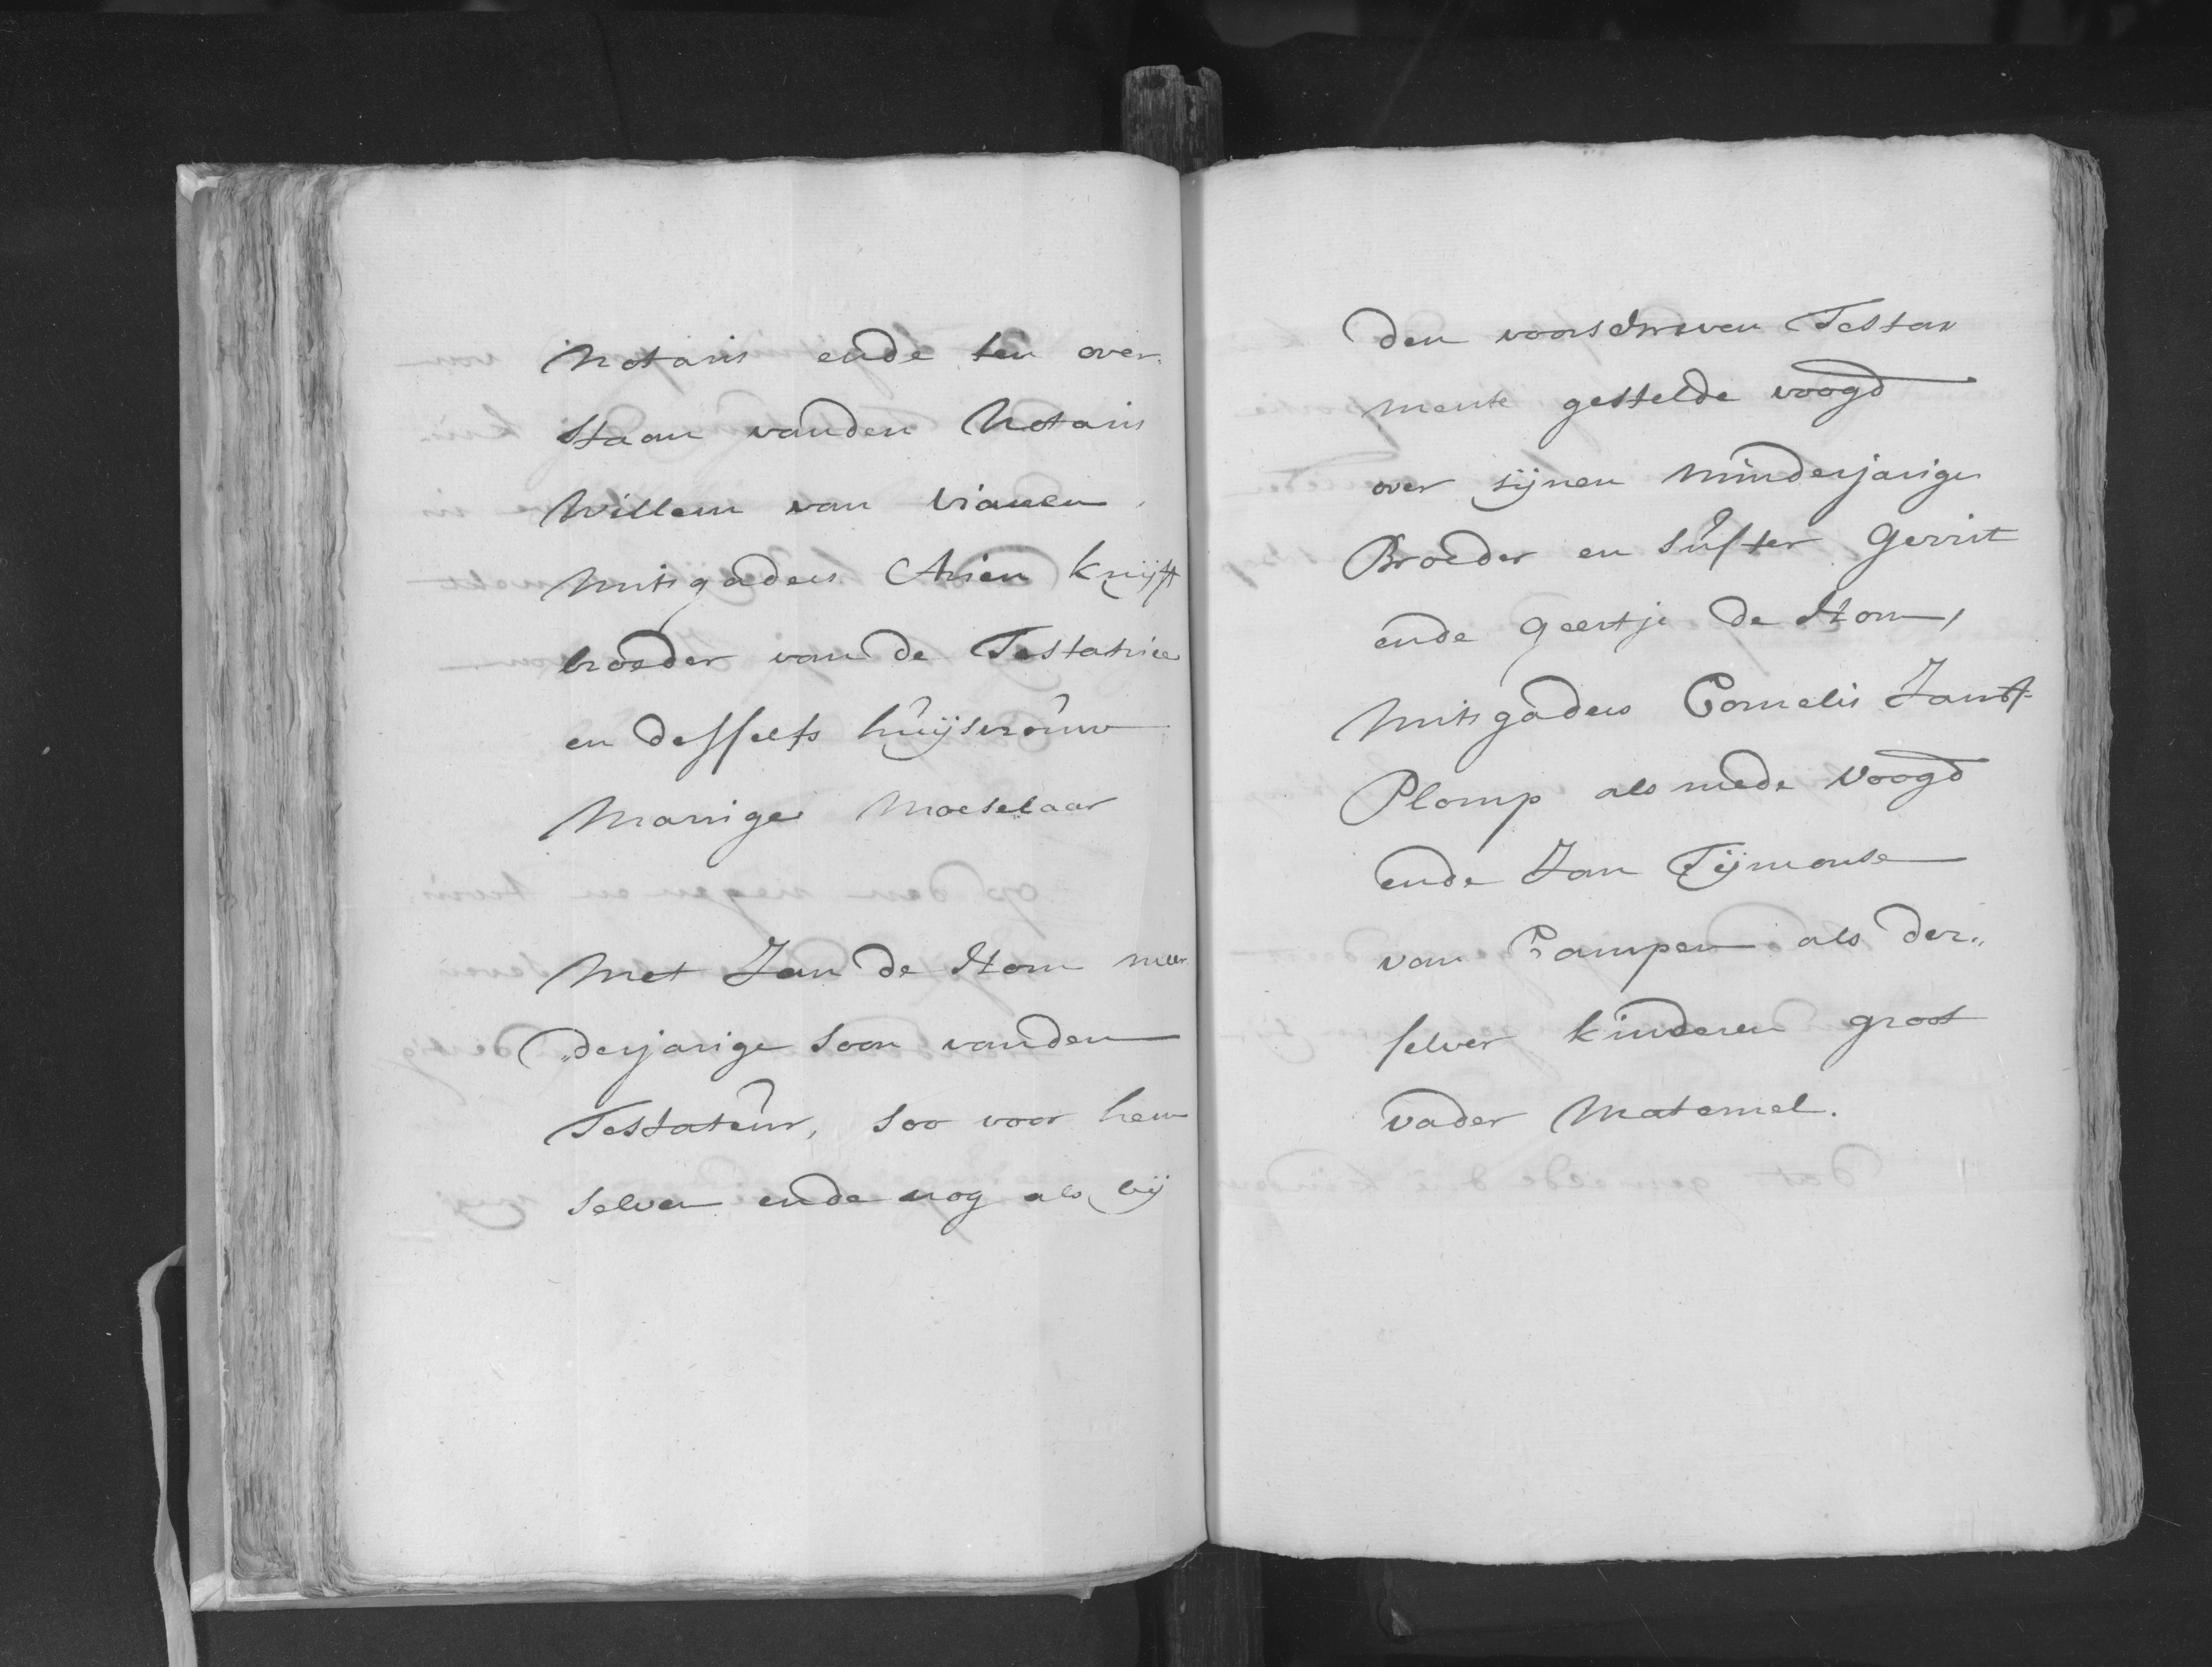 Notaris ende ten over„
staan vanden Notaris
Willem van Vianen,
mitsgaders Arien Knijft
broeder van de Testatrice
en desselfs huijsvrouw
Marrigie Moeselaar
Met Jan de Stom meer„
„derjarige soon vanden
Testateur, soo voor hem
selven ende nog als bij
den voorschreven Testa„
mente gestelde voogd
over sijnen minderjarige
Broeder en suster Gerrit
ende Geertje de Stom,
mitsgaders Cornelis Janss
Plomp als mede voogd
ende Jan Tijmonse
van Campen als der„
selver kinderen groot
vader Maternel.